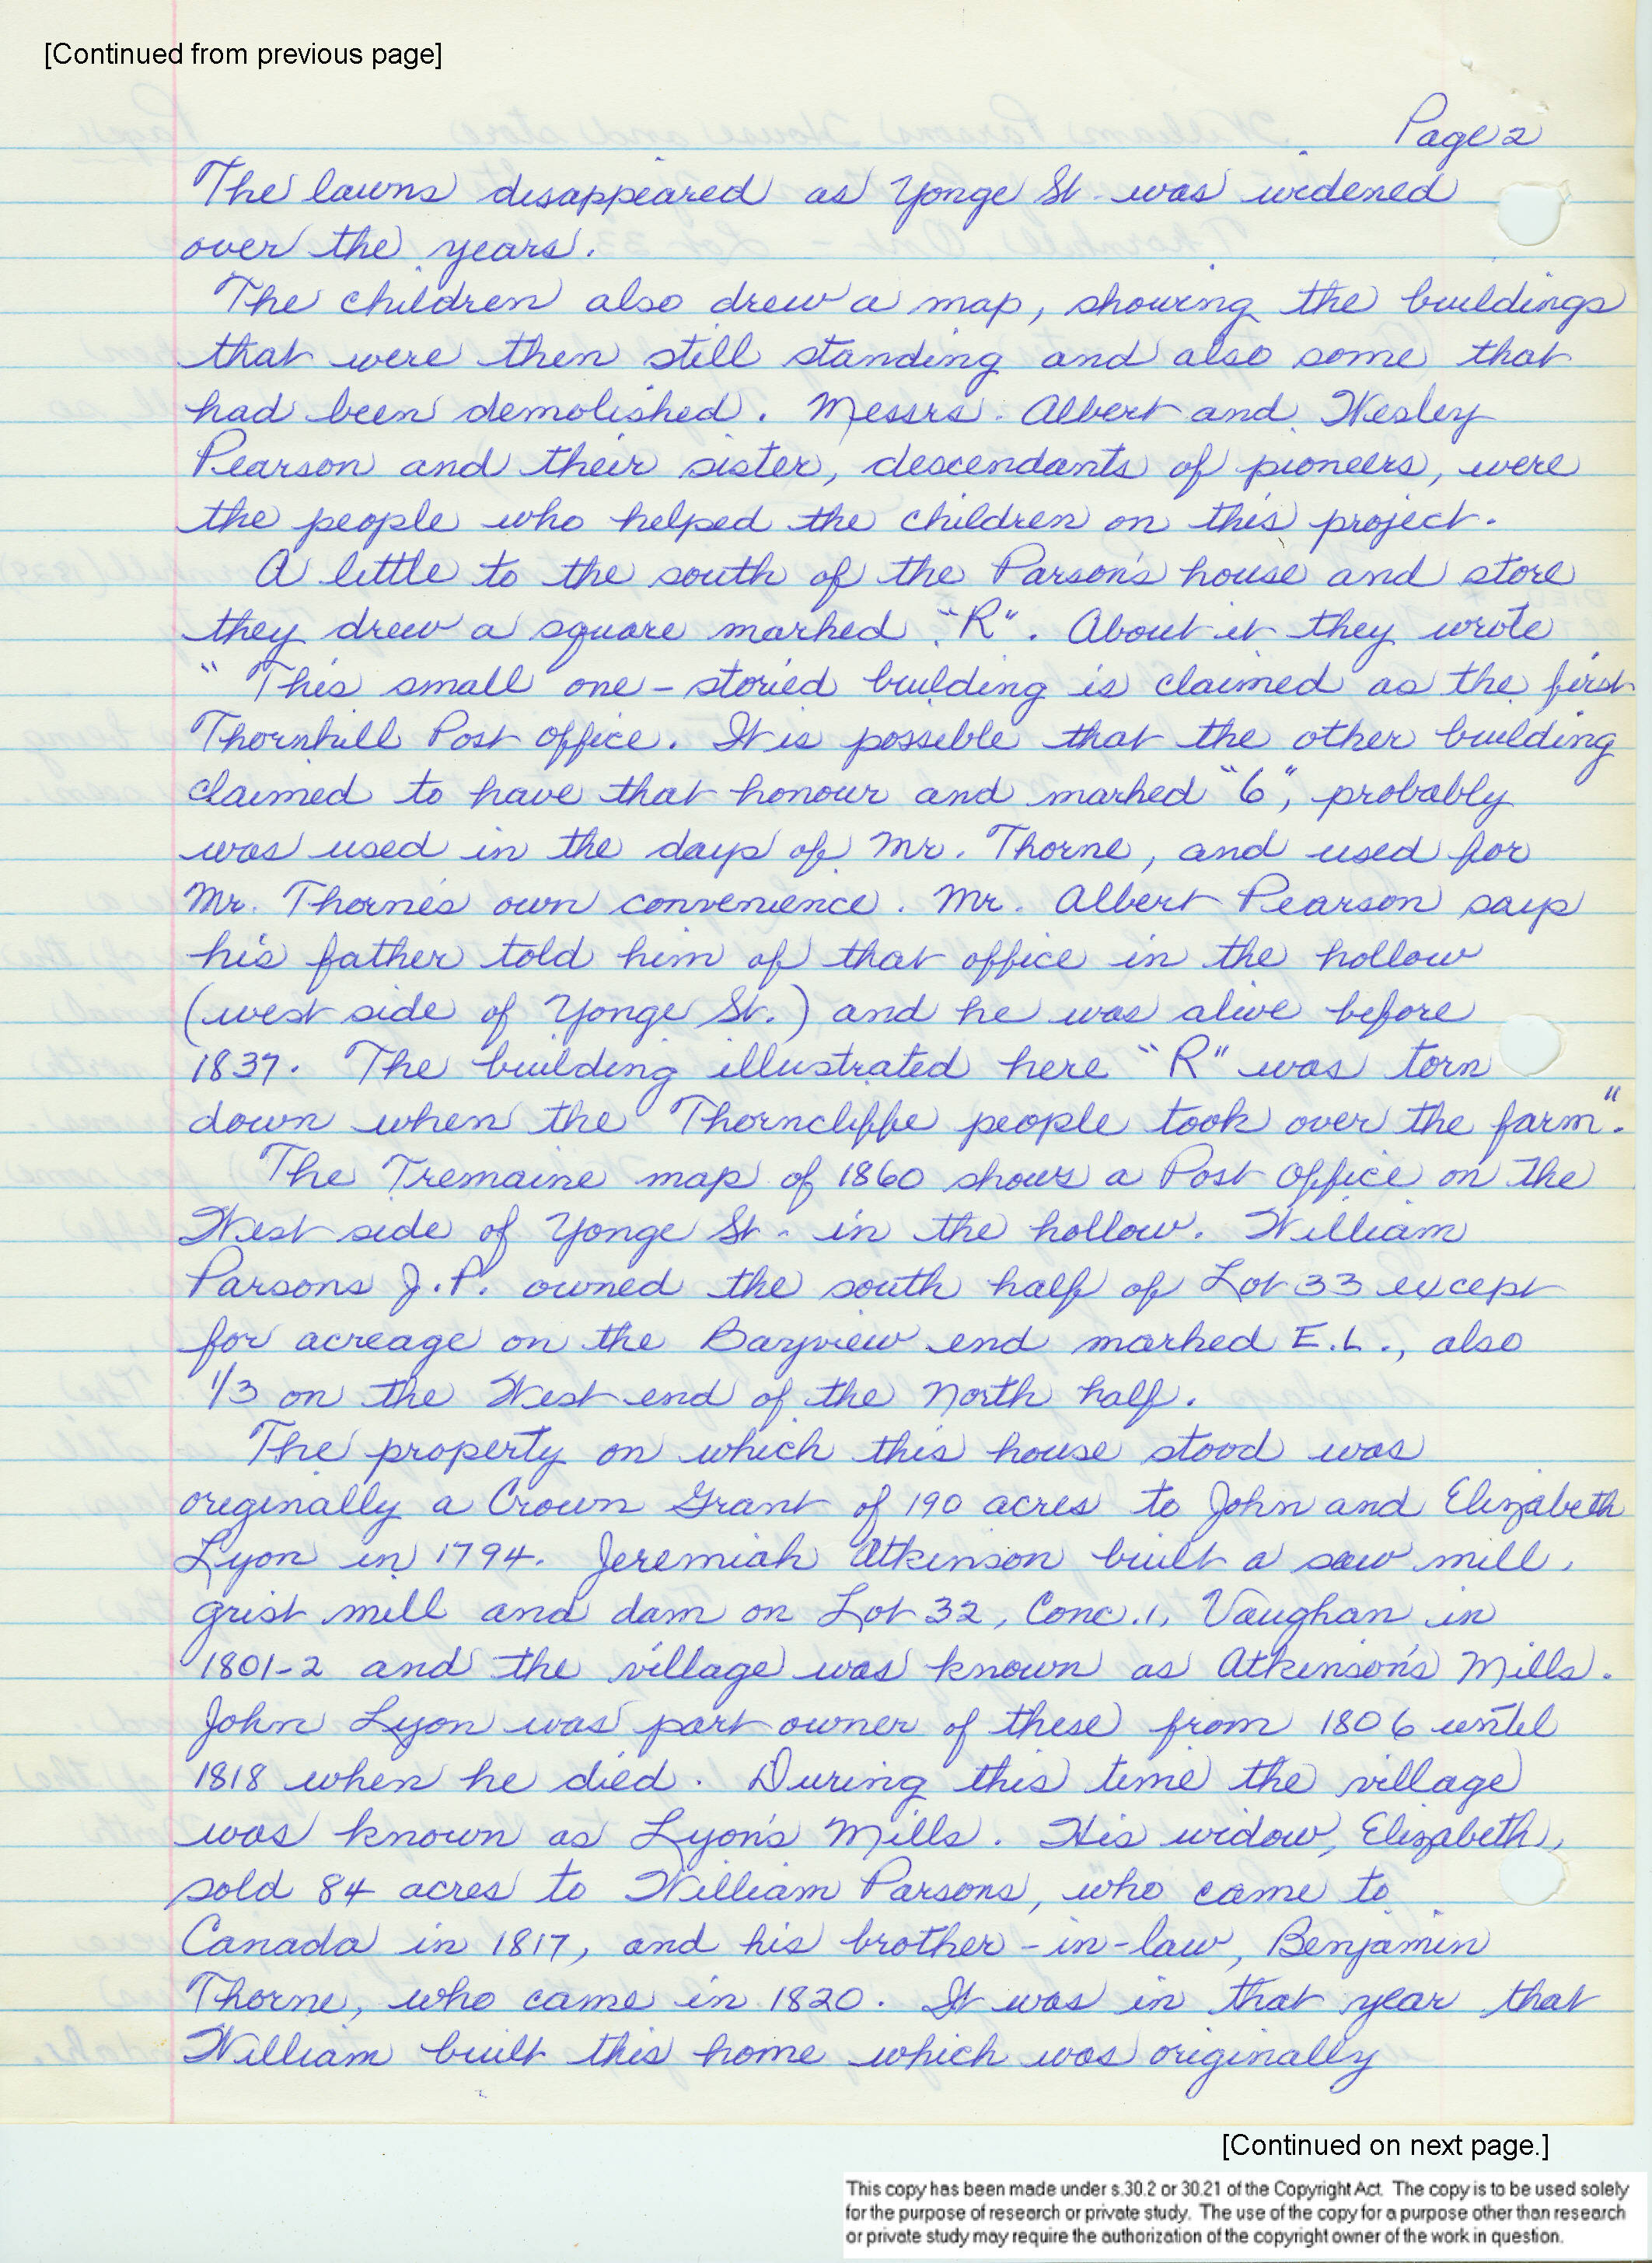 [Continued from previous page]
Page 2
The lawns disappeared as Yonge St. was widened
over the years.
The children also drew a map, showing the buildings
that were then still standing and also some that
had been demolished. Messrs. Albert and Wesley
Pearson and their sister, descendants of pioneers, were
the people who helped the children on this project.
A little to the south of the Parson's house and store
they drew a square marked "R". About it they wrote
"This small one-storied building is claimed as the first
Thornhill Post Office. It is possible that the other building
claimed to have that honour and marked "6", probably
was used in the days of Mr. Thorne, and used for
Mr. Thorne's own convenience. Mr. Albert Pearson says
his father told him of that office in the hollow
(west side of Yonge St.) and he was alive before
1837. The building illustrated here "R" was torn
down when the Thorncliffe people took over the farm."
The Tremaine map of 1860 shows a Post Office on the
West side of Yonge St. in the hollow. William
Parsons J.P. owned the south half of Lot 33 except
for acreage on the Bayview end marked E.L., also
1/3 on the West end of the North half.
The property on which this house stood was
originally a Crown Grant of 190 acres to John and Elizabeth
Lyon in 1794. Jeremiah Atkinson built a saw mill,
grist mill and dam on Lot 32, Conc. 1, Vaughan in
1801-2 and the village was known as Atkinson's Mills.
John Lyon was part owner of these from 1806 until
1818 when he died. During this time the village
was known as Lyon's Mills. His widow, Elizabeth,
sold 84 acres to William Parsons, who came to
Canada in 1817, and his brother-in-law, Benjamin
Thorne, who came in 1820. It was in that year that
William built this home which was originally
[Continued on next page.]
This copy has been made under s.30.2 or 30.21 of the Copyright Act. The copy is to be used solely
for the purpose of research or private study. The use of the copy for a purpose other than research
or private study may require the authorization of the copyright owner of the work in question.